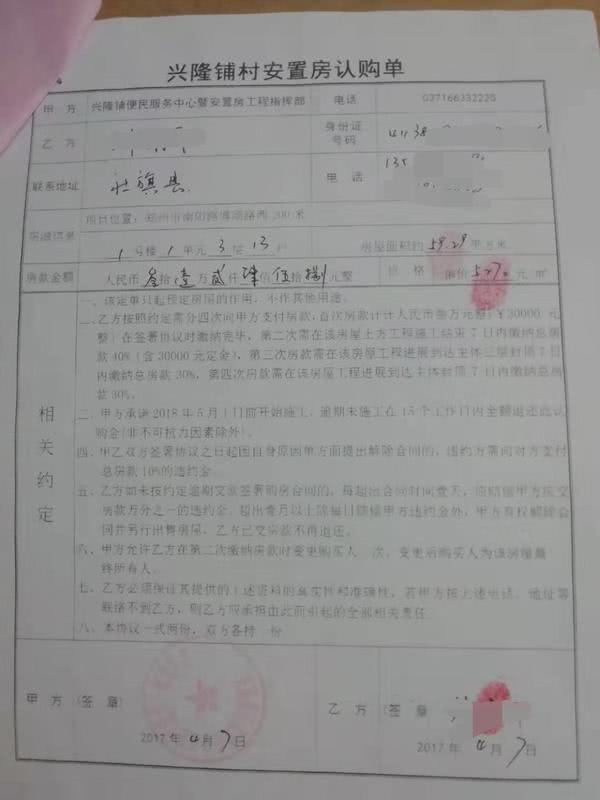 兴隆铺村安置房认购单
甲 方 兴隆铺便民服务中心暨安置房工程指挥部 电话 037166332225
乙 方 身份证号码
联系地址 社旗县 电 话 135
房源信息 项目位置: 郑州市南阳路博颂路西200米
1号楼1单元3层13户 房屋面积约59.29平方米
房款金额 人民币叁拾壹万贰仟肆佰伍拾捌元整 价 格 单价5270元/㎡
相关约定
一、该定单只起预定房屋的作用，不作其他用途。
二、乙方按照约定需分四次向甲方支付房款，首次房款计人民币叁万元整(￥30000元
整)在签署协议时缴纳完毕，第二次需在该房屋土方工程施工结束7日内缴纳总房
款40%（含30000元定金），第三次房款需在该房屋工程进展到达主体三层封顶7日
内缴纳总房款30%，第四次房款需在该房屋工程进展到达主体封顶7日内缴纳总房
款30%。
二、甲方承诺2018年5月1日前开始施工，逾期未施工在15个工作日内全额退还此认
购金(非不可抗力因素除外)。
四、甲乙双方签署协议之日起因自身原因单方面提出解除合同的，违约方需向对方支付
总房款10%的违约金。
五、乙方如未按约定逾期交款签署购房合同的，每超出合同时间壹天，应赔偿甲方应交
房款万分之一的违约金。超出壹月以上除每日赔偿甲方违约金外，甲方有权解除合
同并另行出售房屋，乙方已交房款不再退还。
六、甲方允许乙方在第二次缴纳房款时变更购买人一次，变更后购买人为该房屋最
终所有人。
七、乙方必须保证其提供的上述资料的真实性和准确性，若甲方按上述电话、地址等
联络不到乙方，则乙方应承担由此而引起的全部相关责任。
八、本协议一式两份，双方各持一份
甲 方（签 章） 乙 方（签 章
2017年4月7日 2017年4月7日